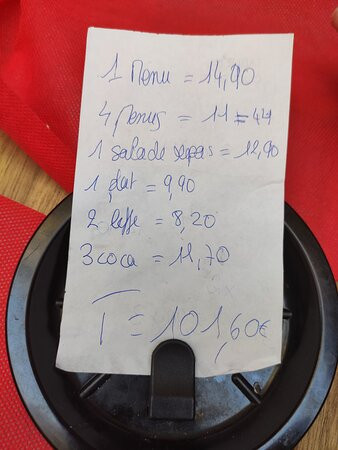 1 Menu = 14,90
4 Menus = 11 = 44
1 salade repas = 12,90
1 plat = 9,90
2 leffe = 8,20
3 coca = 11,70
T = 101,60€